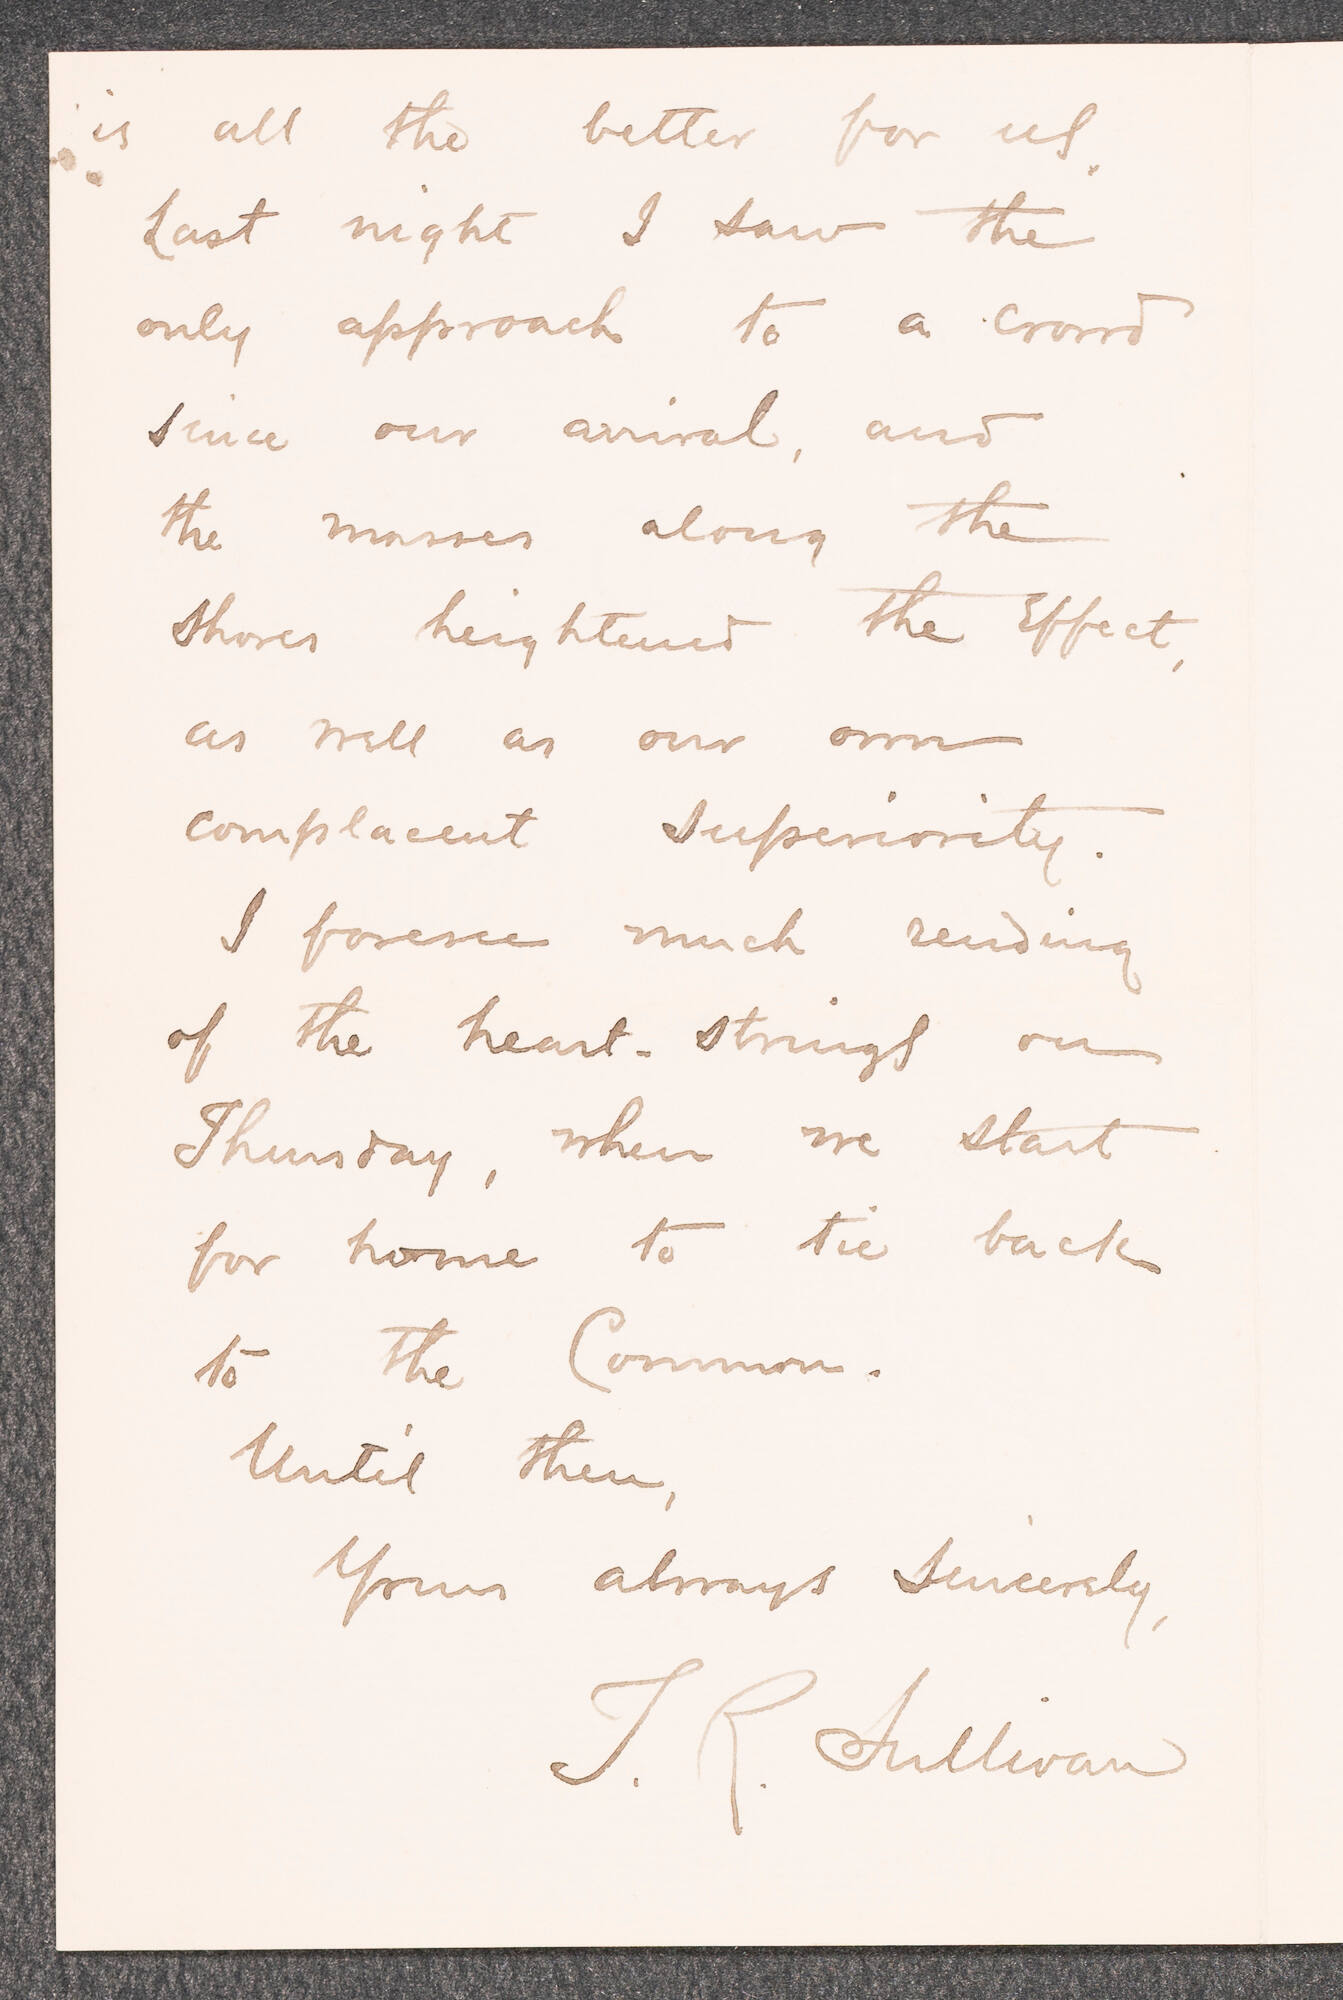 is all the better for us.
Last night I saw the
only approach to a crowd
since our arrival, and
the masses along the
shores heightened the Effect,
as well as our own
complacent superiority.
I foresee much rending
of the heart-strings on
Thursday, when we start
for home to tie back
to the Common.
Until then,
Yours always sincerely,
T. R. Sullivan